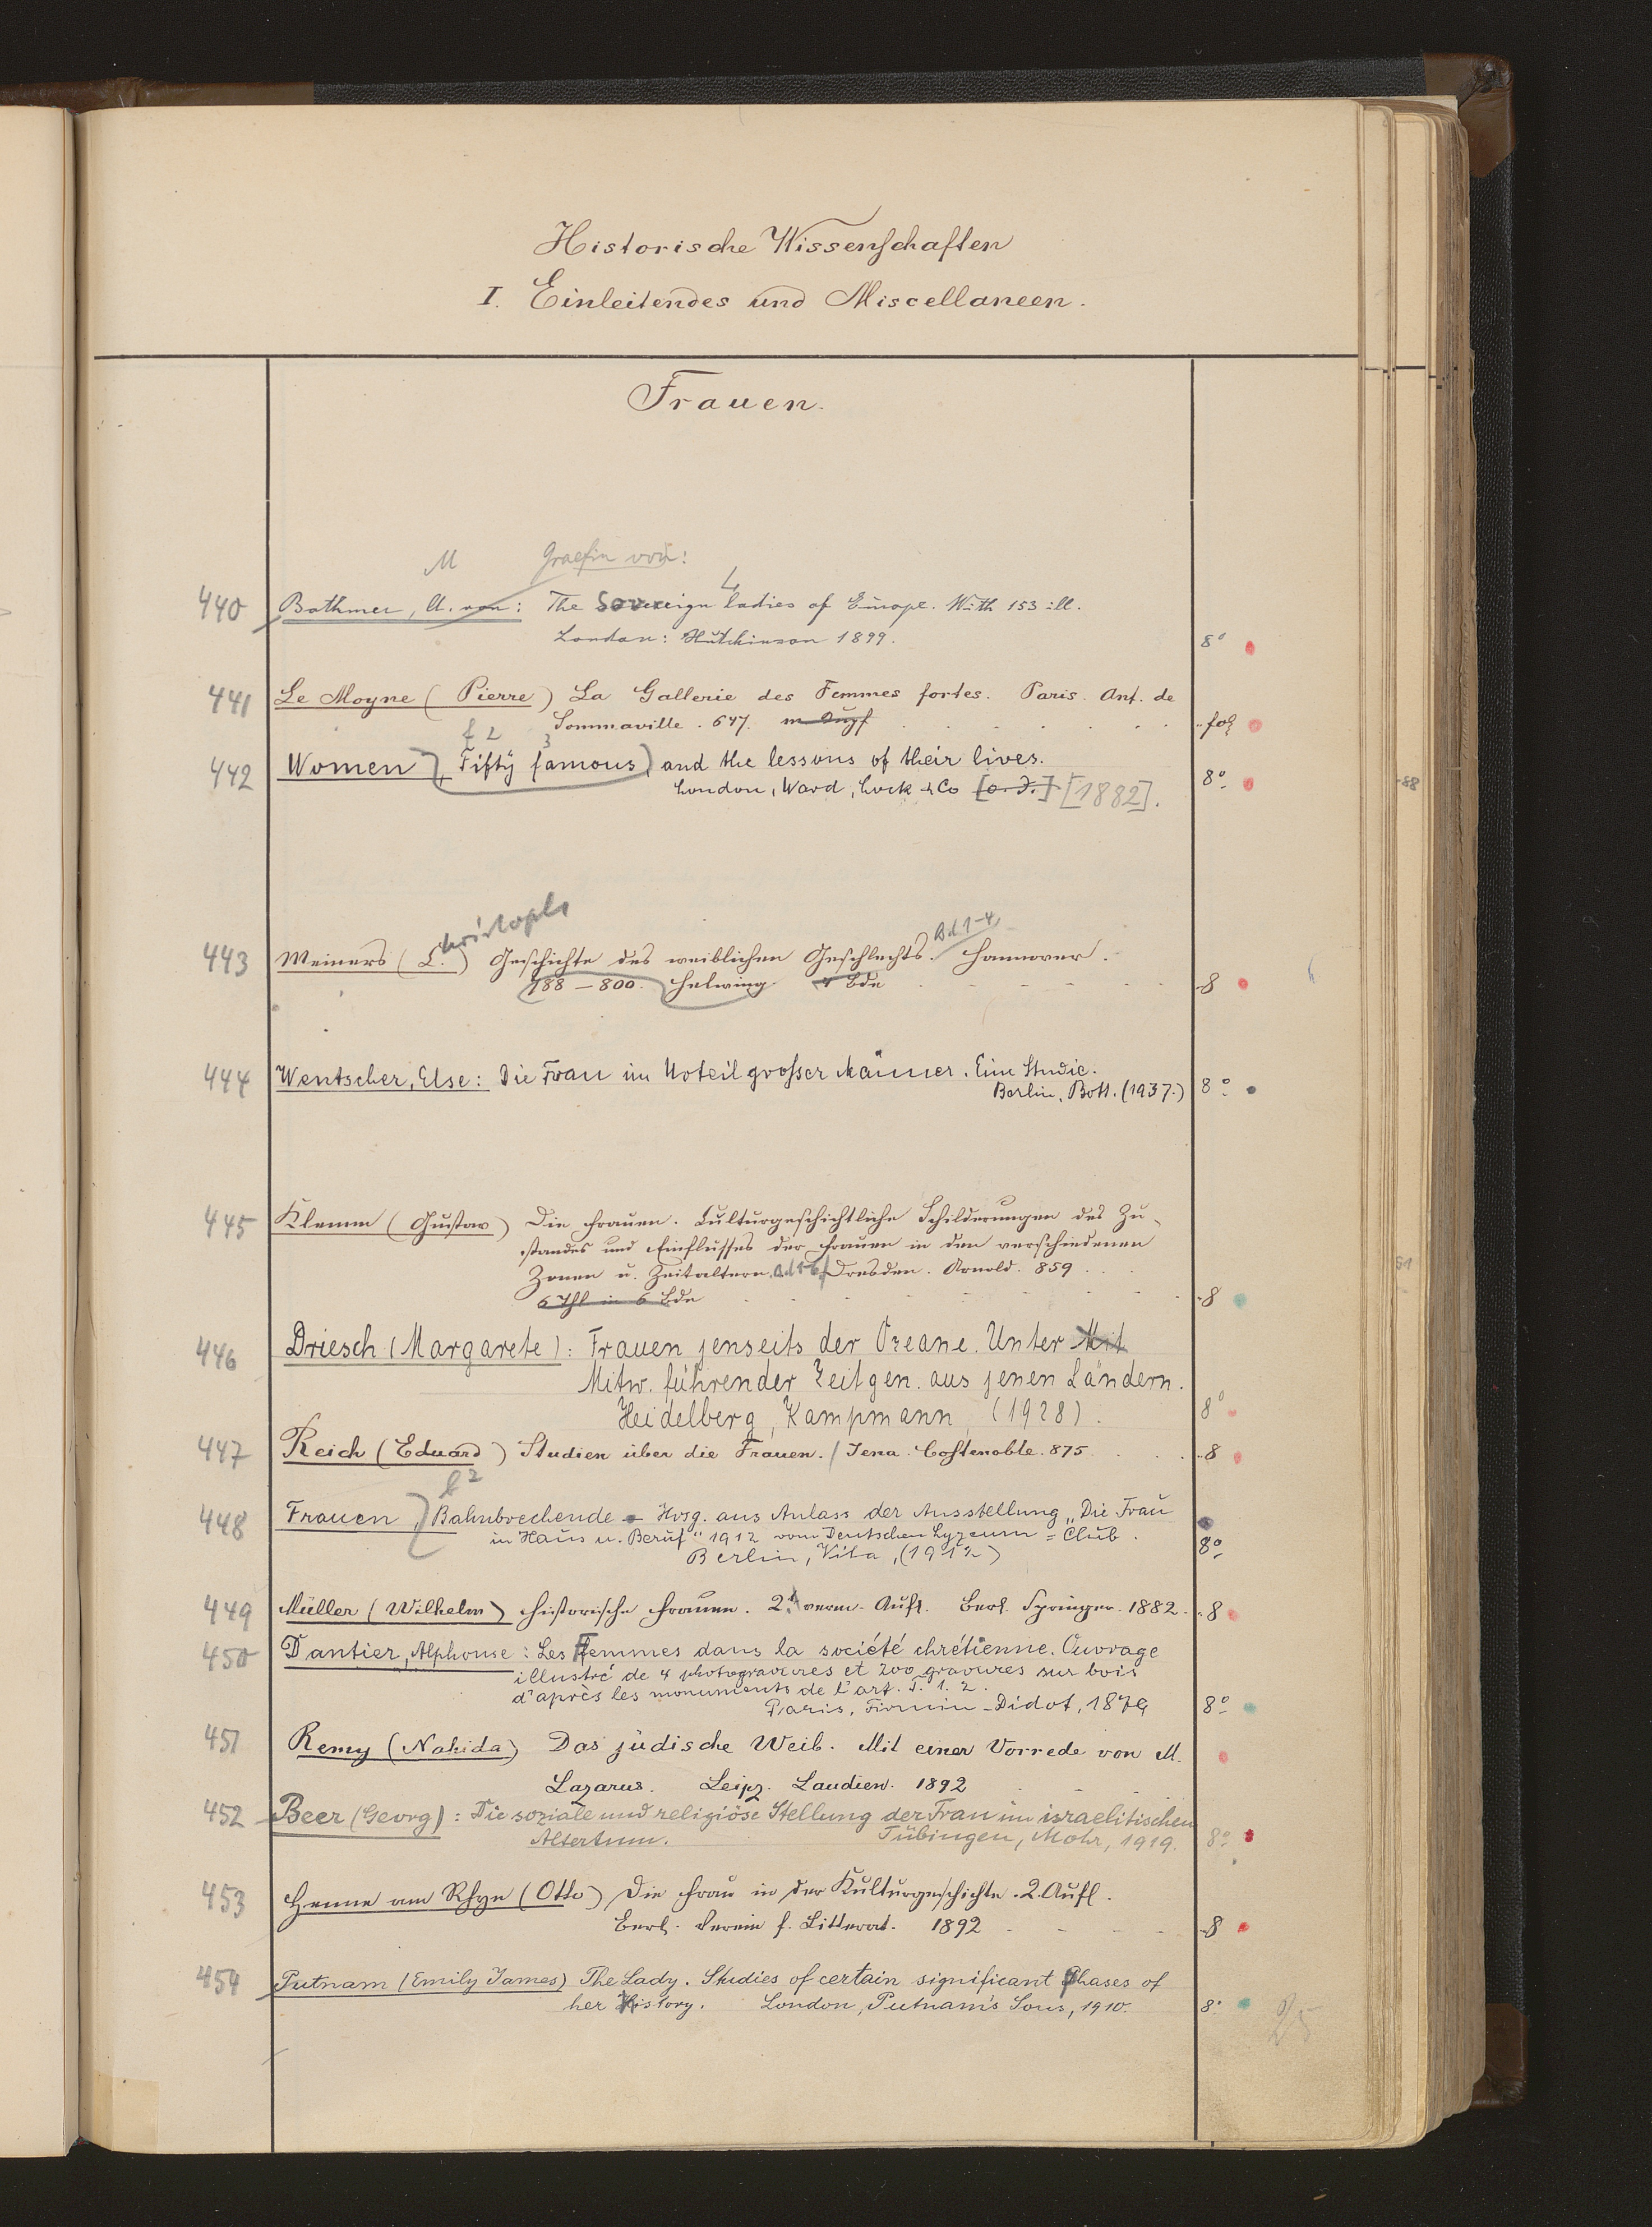 Historische Wissenschaften
I. Einleitendes und Miscellaneen.
Frauen.
M Graefin von:
440 Bothmer, A. von: The Sovereign Ladies of Europe. With 153 ill.
London: Hutchinson 1899. 8°
441 Le Moyne (Pierre) La Gallerie des Femmes fortes. Paris. Ant. de
Sommaville. 647. fol
442 Women, Fifty famous, and the lessons of their lives.
London, Ward, Lock & Co [o. J.] [1882]. 8°
Christoph
Bd 1-4
443 Meiners (C.) Geschichte des weiblichen Geschlechts. Hannover.
788-800. Helwing 4 Bde 8
444 Wentscher, Else: Die Frau im Urteil grosser Männer. Eine Studie.
Berlin, Bott. (1937.) 8°
445 Klemm (Gustav) Die Frauen. Culturgeschichtliche Schilderungen des Zu-
standes und Einflusses der Frauen in den verschiedenen
Zonen u. Zeitaltern. Bd 1-6. Dresden. Arnold. 859
6 Thl in 6 Bde 8
446 Driesch (Margarete): Frauen jenseits der Ozeane. Unter Mit
Mitw. führender Zeitgen. aus jenen Ländern.
Heidelberg, Kampmann, (1928). 8°
447 Reich (Eduard) Studien über die Frauen. / Jena. Costenoble. 875 8
448 Frauen, Bahnbrechende - Hrsg. aus Anlass der Ausstellung „Die Frau
in Haus u. Beruf" 1912 vom Deutschen Lyzeum = Club.
Berlin, Vita, (1912) 8°
449 Müller (Wilhelm) Historische Frauen. 2. verm. Aufl. Berl. Springer. 1882. 8
450 Dantier, Alphonse: Les Femmes dans la société chrétienne. Ouvrage
illustré de 4 photogravures et 200 gravures sur bois
d'après les monuments de l'art. T. 1. 2.
Paris, Firmin-Didot, 1879 8°
451 Remy (Nahida) Das jüdische Weib. Mit einer Vorrede von M.
Lazarus. Leipz. Laudien. 1892
452 Beer (Georg): Die soziale und religiöse Stellung der Frau im israelitischen
Altertum. Tübingen, Mohr, 1919. 8°
453 Henne am Rhyn (Otto) Die Frau in der Kulturgeschichte. 2. Aufl.
Berl. Verein f. Litterat. 1892 8
454 Putnam (Emily James) The Lady. Studies of certain significant Phases of
her History. London, Putnam's Sons, 1910. 8°
25